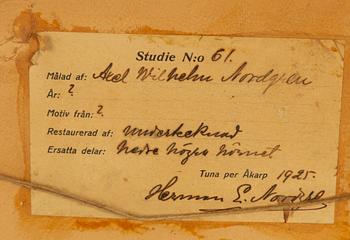 Studie N:o 61.
Målad af: Axel Wilhelm Nordgren
År: ?
Motiv från: ?
Restaurerad af: undertecknad
Ersatta delar: nedre högra hörnet
Tuna per Åkarp 1925.
Herman E.